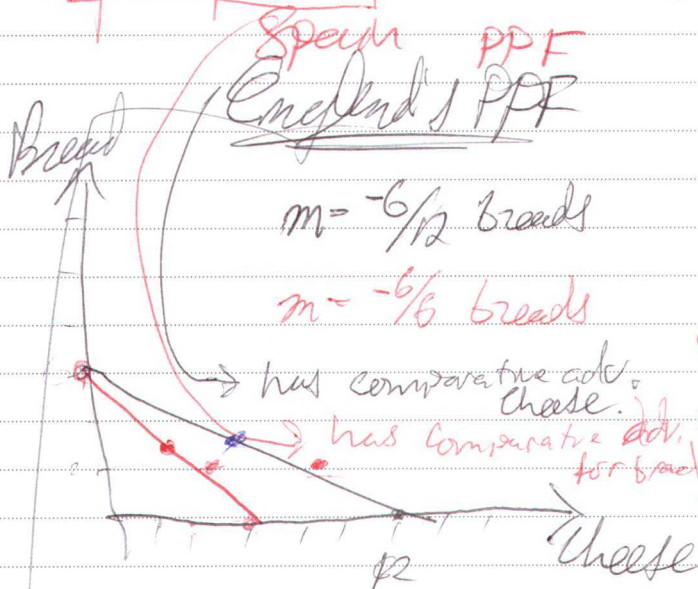 Spain PPF
England's PPF
Bread
m = -6/12 breads
m = -6/6 breads
has comparative adv.
cheese.
has comparative adv.
for bread
2
12
Cheese